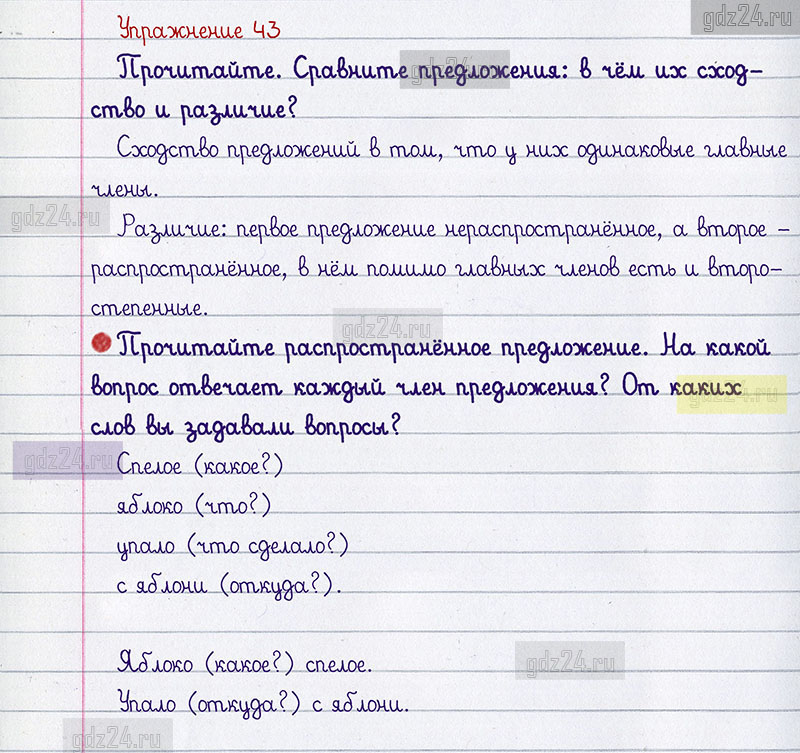 gdz24.ru
Упражнение 43
Прочитайте. Сравните предложения: в чём их сход-
gdz24.ru
ство и различие?
Сходство предложений в том, что у них одинаковые главные
члены.
gdz24.ru
Различие: первое предложение нераспространённое, а второе –
распространённое, в нём помимо главных членов есть и второ-
степенные.
gdz24.ru
Прочитайте распространённое предложение. На какой
вопрос отвечает каждый член предложения? От каких
gdz24.ru
слов вы задавали вопросы?
gdz24.ru
Спелое (какое?)
яблоко (что?)
упало (что сделало?)
с яблони (откуда?).
Яблоко (какое?) спелое.
gdz24.ru
Упало (откуда?) с яблони.
gdz24.ru